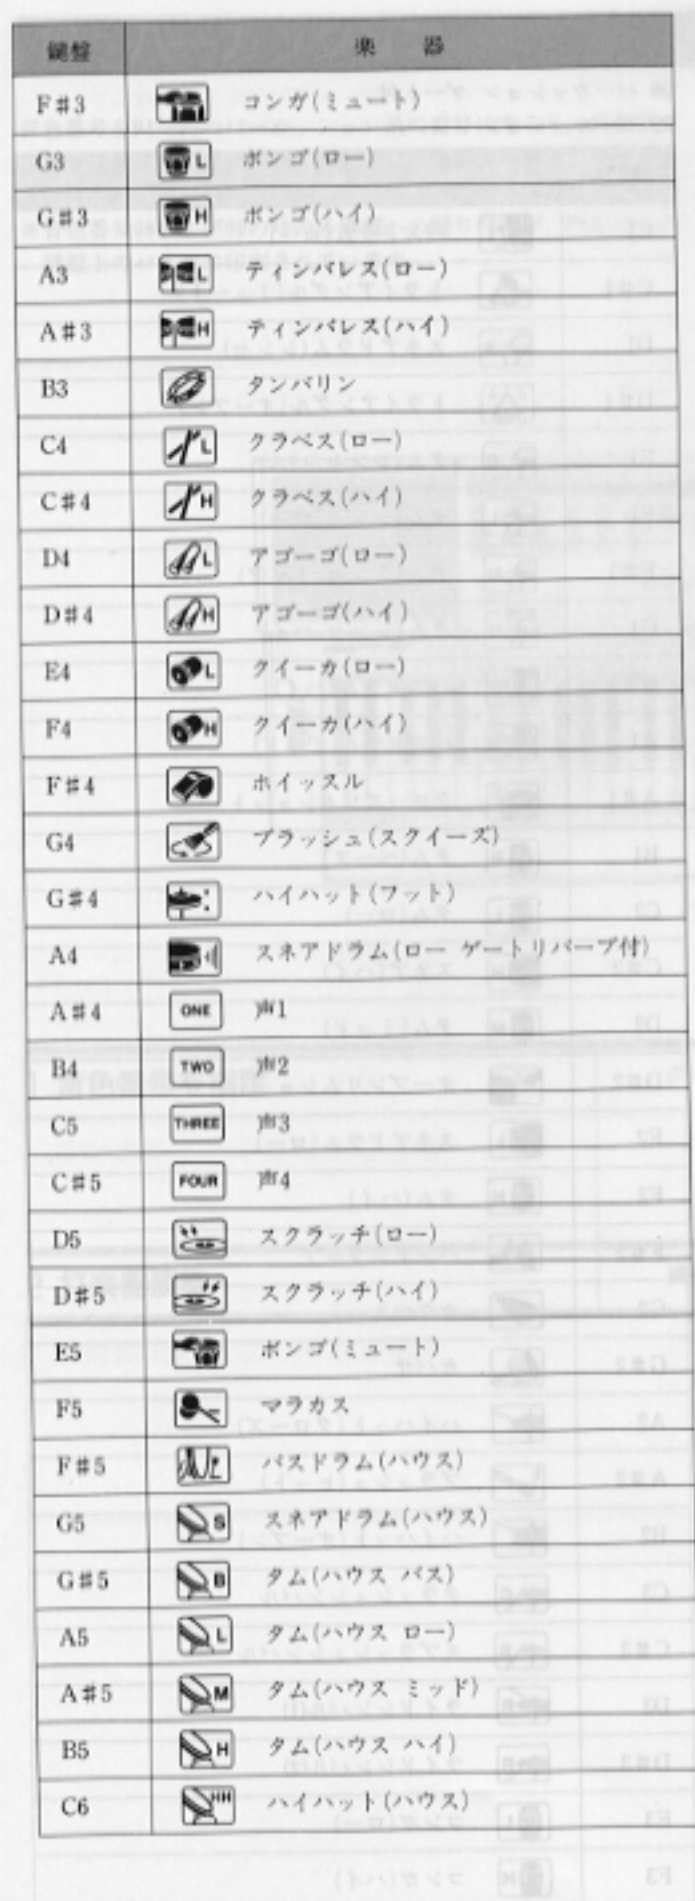 鍵盤 楽 器
F♯3 コンガ(ミュート)
G3 L ボンゴ(ロー)
G♯3 H ボンゴ(ハイ)
A3 L ティンバレス(ロー)
A♯3 H ティンバレス(ハイ)
B3 タンバリン
C4 L クラベス(ロー)
C♯4 H クラベス(ハイ)
D4 L アゴーゴ(ロー)
D♯4 H アゴーゴ(ハイ)
E4 L クイーカ(ロー)
F4 H クイーカ(ハイ)
F♯4 ホイッスル
G4 ブラッシュ(スクイーズ)
G♯4 ハイハット(フット)
A4 スネアドラム(ロー ゲートリバーブ付)
A♯4 ONE 声1
B4 TWO 声2
C5 THREE 声3
C♯5 FOUR 声4
D5 スクラッチ(ロー)
D♯5 スクラッチ(ハイ)
E5 ボンゴ(ミュート)
F5 マラカス
F♯5 バスドラム(ハウス)
G5 S スネアドラム(ハウス)
G♯5 B タム(ハウス バス)
A5 L タム(ハウス ロー)
A♯5 M タム(ハウス ミッド)
B5 H タム(ハウス ハイ)
C6 HH ハイハット(ハウス)